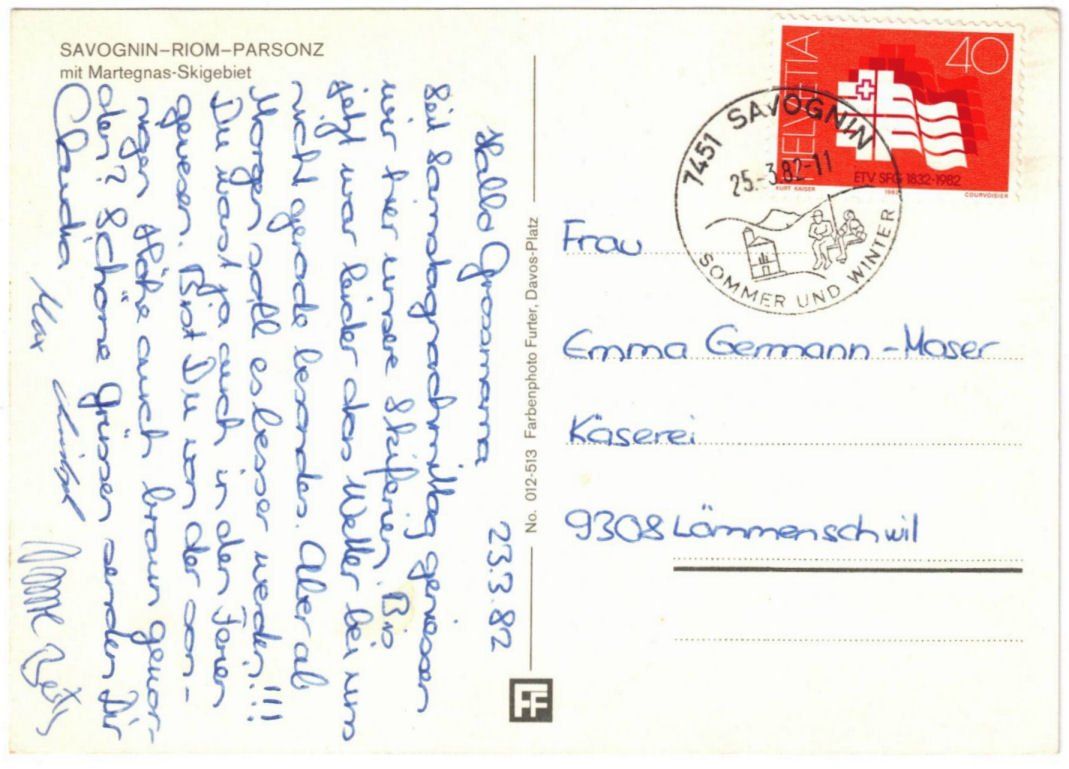 SAVOGNIN–RIOM–PARSONZ
mit Martegnas-Skigebiet
Hallo Grossmama 23.3.82
Seit Samstagnachmittag geniessen
wir hier unsere Skiferien. Bis
jetzt war leider das Wetter bei uns
nicht gerade besonders. Aber ab
Morgen soll es besser werden!!!
Du warst ja auch in den Ferien
gewesen. Bist Du von der son-
nigen Höhe auch braun gewor-
den? Schöne Grüsse senden Dir
Claudia Max
No. 012-513 Farbenphoto Furter, Davos-Platz
FF
HELVETIA
40
ETV SFG 1832-1982
KURT KAISER 1982 COURVOISIER
7451 SAVOGNIN
25.-3.82-11
SOMMER UND WINTER
Frau
Emma Germann-Moser
Käserei
9308 Lömmenschwil